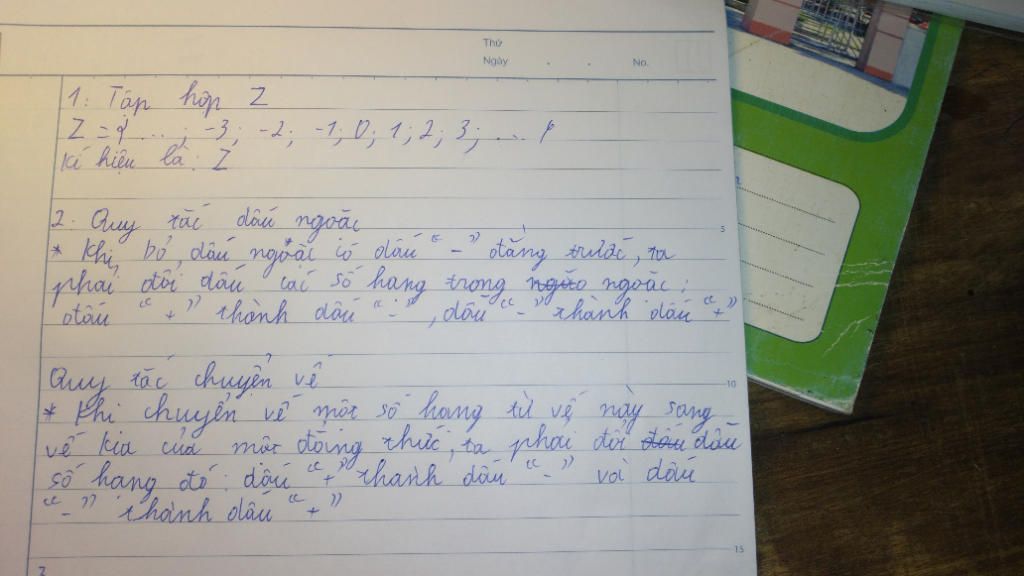 Thứ
Ngày . . No.
1: Tập hợp Z
Z = { ... ; -3; -2; -1; 0; 1; 2; 3; ... }
Kí hiệu là: Z
2: Quy tắc dấu ngoặc
5
* Khi bỏ dấu ngoặc có dấu "-" đằng trước, ta
phải đổi dấu các số hạng trong ngoặc:
dấu "+" thành dấu "-", dấu "-" thành dấu "+"
Quy tắc chuyển vế
10
* Khi chuyển vế một số hạng từ vế này sang
vế kia của một đẳng thức, ta phải đổi dấu
số hạng đó: dấu "+" thành dấu "-" và dấu
"-" thành dấu "+"
15